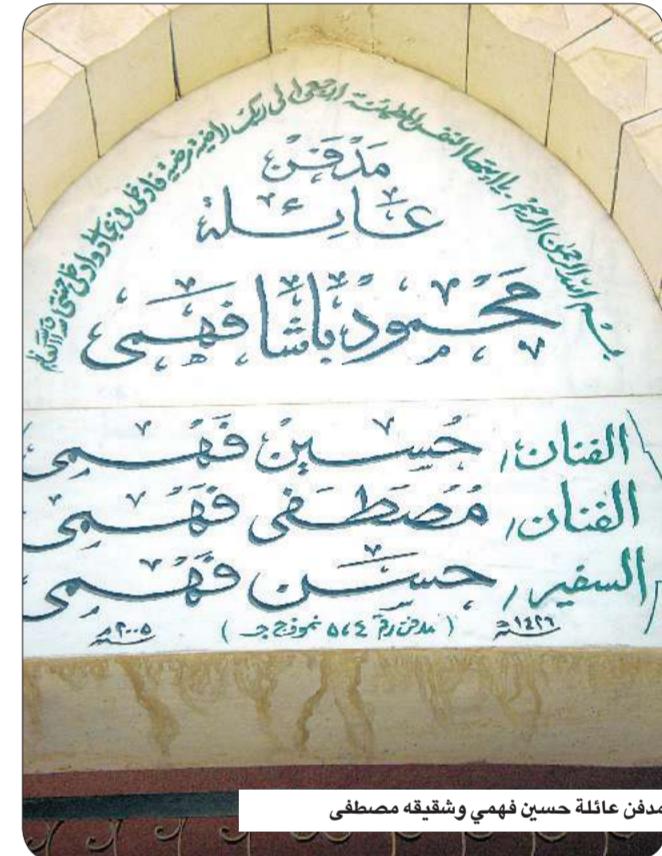 بسم الله الرحمن الرحيم يا أيتها النفس المطمئنة ارجعى الى ربك راضية مرضية فادخلى فى عبادى وادخلى جنتى صدق الله العظيم
مدفن
عائلة
محمود باشا فهمى
الفنان/ حسين فهمى
الفنان/ مصطفى فهمى
السفير/ حسن فهمى
١٤٢٦ هـ ( مدفن رقم ٥٦٤ نموذج جـ ) ٢٠٠٥ م
مدفن عائلة حسين فهمي وشقيقه مصطفى